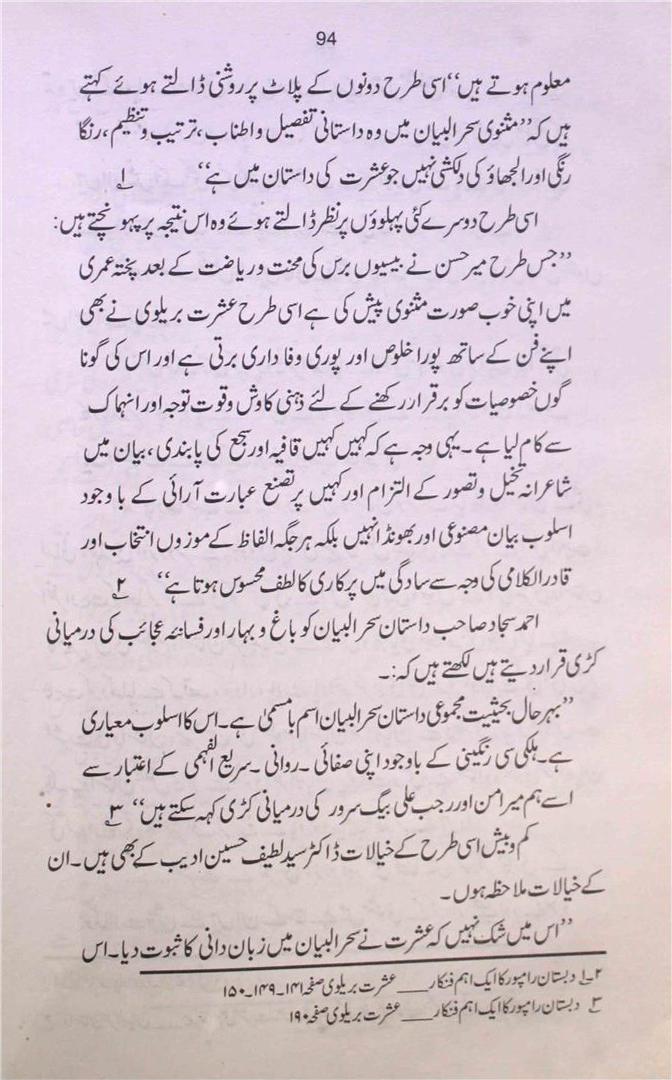 94
معلوم ہوتے ہیں‘‘ اسی طرح دونوں کے پلاٹ پر روشنی ڈالتے ہوئے کہتے
ہیں کہ ’’مثنوی سحرالبیان میں وہ داستانی تفصیل و اطناب، ترتیب و تنظیم، رنگا
رنگی اور الجھاؤ کی دلکشی نہیں جو عشرت کی داستان میں ہے‘‘ ۱؎
اسی طرح دوسرے کئی پہلوؤں پر نظر ڈالتے ہوئے وہ اس نتیجہ پر پہونچتے ہیں:
’’جس طرح میر حسن نے بیسیوں برس کی محنت و ریاضت کے بعد پختہ عمری
میں اپنی خوب صورت مثنوی پیش کی ہے اسی طرح عشرت بریلوی نے بھی
اپنے فن کے ساتھ پورا خلوص اور پوری وفاداری برتی ہے اور اس کی گونا
گوں خصوصیات کو برقرار رکھنے کے لئے ذہنی کاوش و قوت توجہ اور انہماک
سے کام لیا ہے۔ یہی وجہ ہے کہ کہیں کہیں قافیہ اور سجع کی پابندی، بیان میں
شاعرانہ تخیل و تصور کے التزام اور کہیں پر تصنع عبارت آرائی کے باوجود
اسلوب بیان مصنوعی اور بھونڈا نہیں بلکہ ہر جگہ الفاظ کے موزوں انتخاب اور
قادر الکلامی کی وجہ سے سادگی میں پرکاری کا لطف محسوس ہوتا ہے‘‘ ۲؎
احمد سجاد صاحب داستان سحرالبیان کو باغ و بہار اور فسانۂ عجائب کی درمیانی
کڑی قرار دیتے ہیں لکھتے ہیں کہ:۔
’’بہرحال بحیثیت مجموعی داستان سحرالبیان اسم بامسمیٰ ہے۔ اس کا اسلوب معیاری
ہے۔ ہلکی سی رنگینی کے باوجود اپنی صفائی۔ روانی۔ سریع الفہمی کے اعتبار سے
اسے ہم میر امن اور رجب علی بیگ سرور کی درمیانی کڑی کہہ سکتے ہیں‘‘ ۳؎
کم و بیش اسی طرح کے خیالات ڈاکٹر سید لطیف حسین ادیب کے بھی ہیں۔ ان
کے خیالات ملاحظہ ہوں۔
’’اس میں شک نہیں کہ عشرت نے سحرالبیان میں زبان دانی کا ثبوت دیا۔ اس
۱؎۲ دبستان رامپور کا ایک اہم فنکار ___ عشرت بریلوی صفحہ ۱۴۱۔۱۴۹۔۱۵۰
۳؎ دبستان رامپور کا ایک اہم فنکار ___ عشرت بریلوی صفحہ ۱۹۰